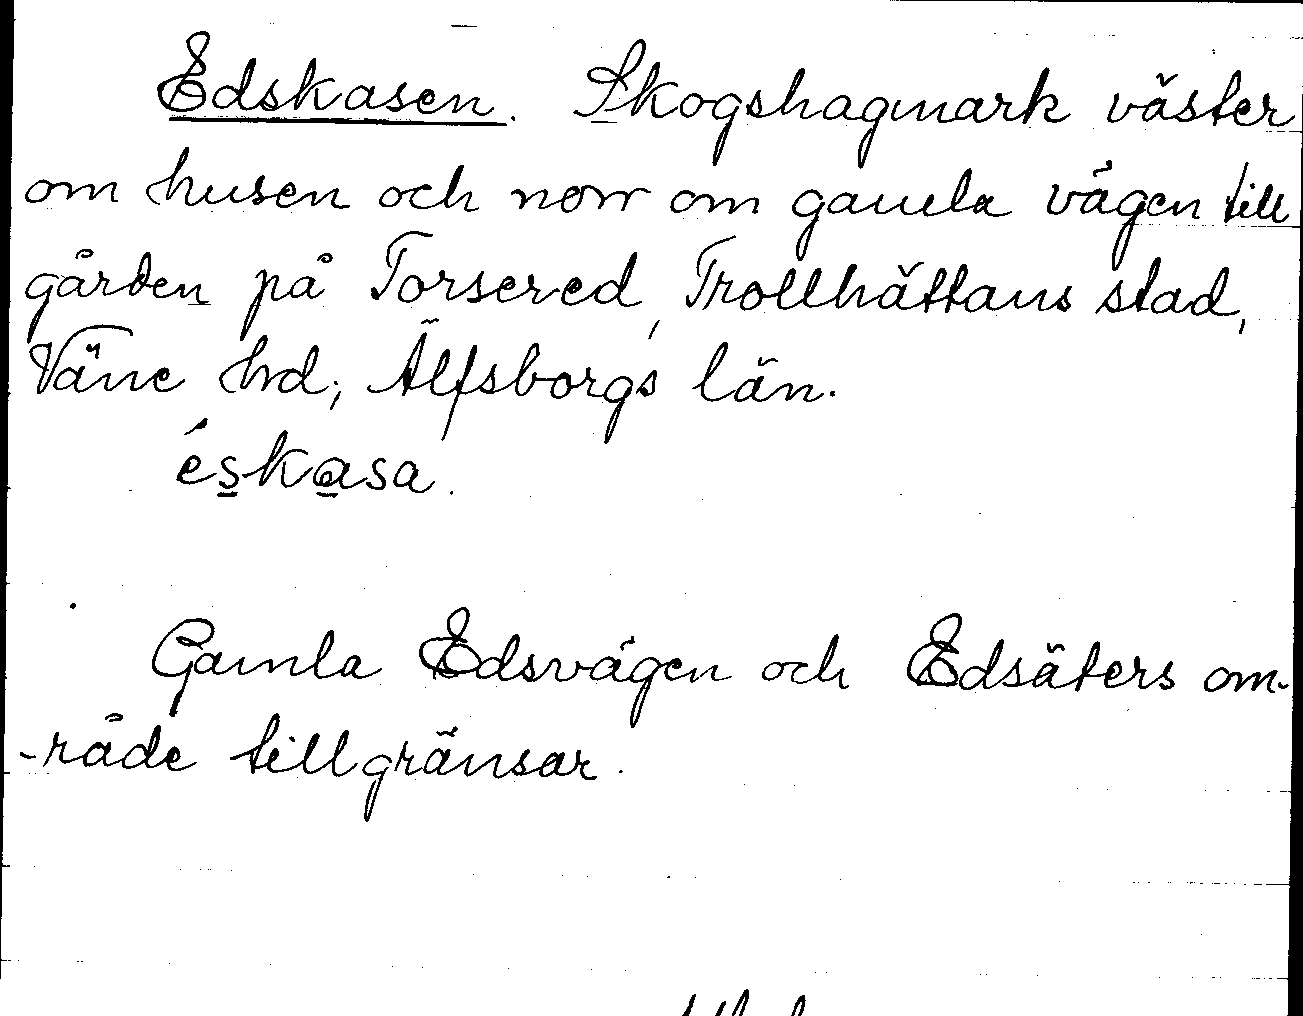 Edskasen. Skogshagmark väster
om husen och norr om gamla vägen till
gården på Torsered, Trollhättans stad,
Väne hd, Älfsborgs län.
éskasa.
Gamla Edsvägen och Edsäters om-
-råde tillgränsar.